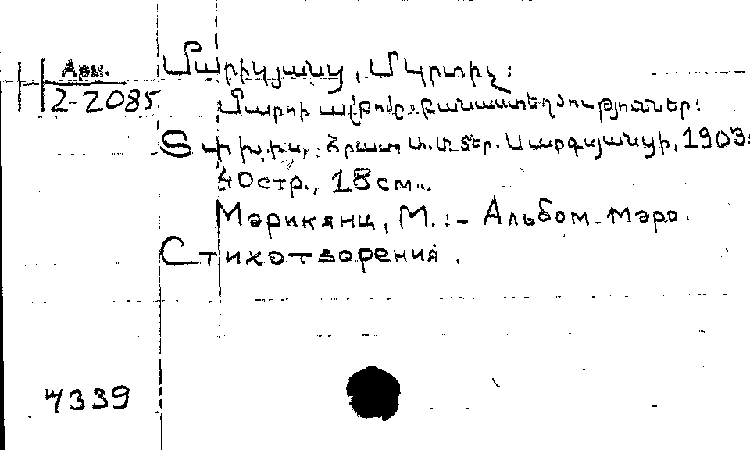 Арм.
2-2085
Մարիկյանց, Մկրտիչ:
Մարոի ալբոմը: Բանաստեղծություններ:
Տփխիս, Հրատ. Մ. Սարգսյանցի, 1903:
40стр., 18см..
Марикянц, М. :- Альбом Маро.
Стихотворения.
4339